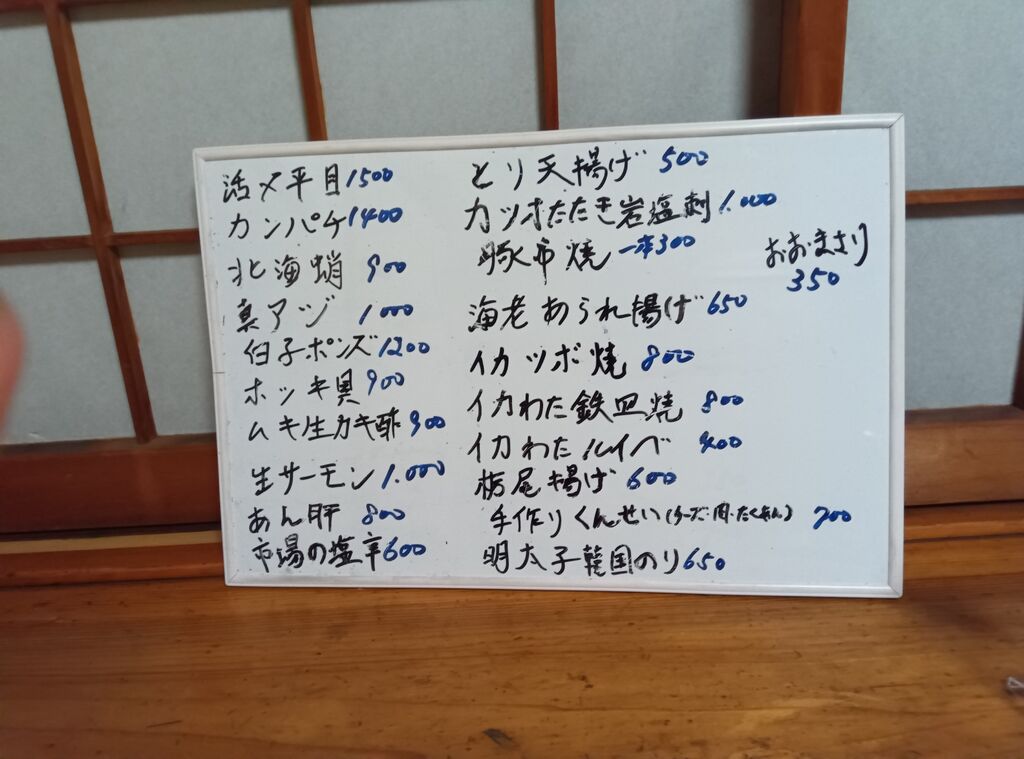 活〆平目 1500
カンパチ 1400
北海蛸 900
真アジ 1000
白子ポンズ 1200
ホッキ貝 900
ムキ生カキ酢 900
生サーモン 1.000
あん肝 800
市場の塩辛 600
とり天揚げ 500
カツオたたき岩塩刺 1.000
豚串焼 一本300
おおまさり
350
海老あられ揚げ 650
イカツボ焼 800
イカわた鉄皿焼 800
イカわたルイベ 400
栃尾揚げ 600
手作りくんせい(チーズ・肉・たくあん) 700
明太子韓国のり 650